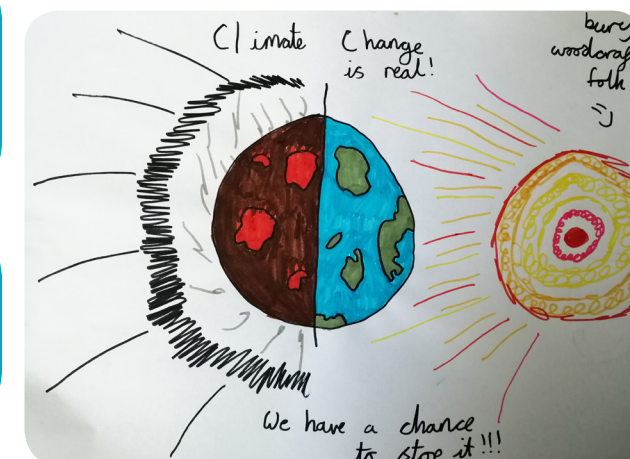 Climate Change
is real!
bury
woodcraf
folk
We have a chance
to stop it!!!